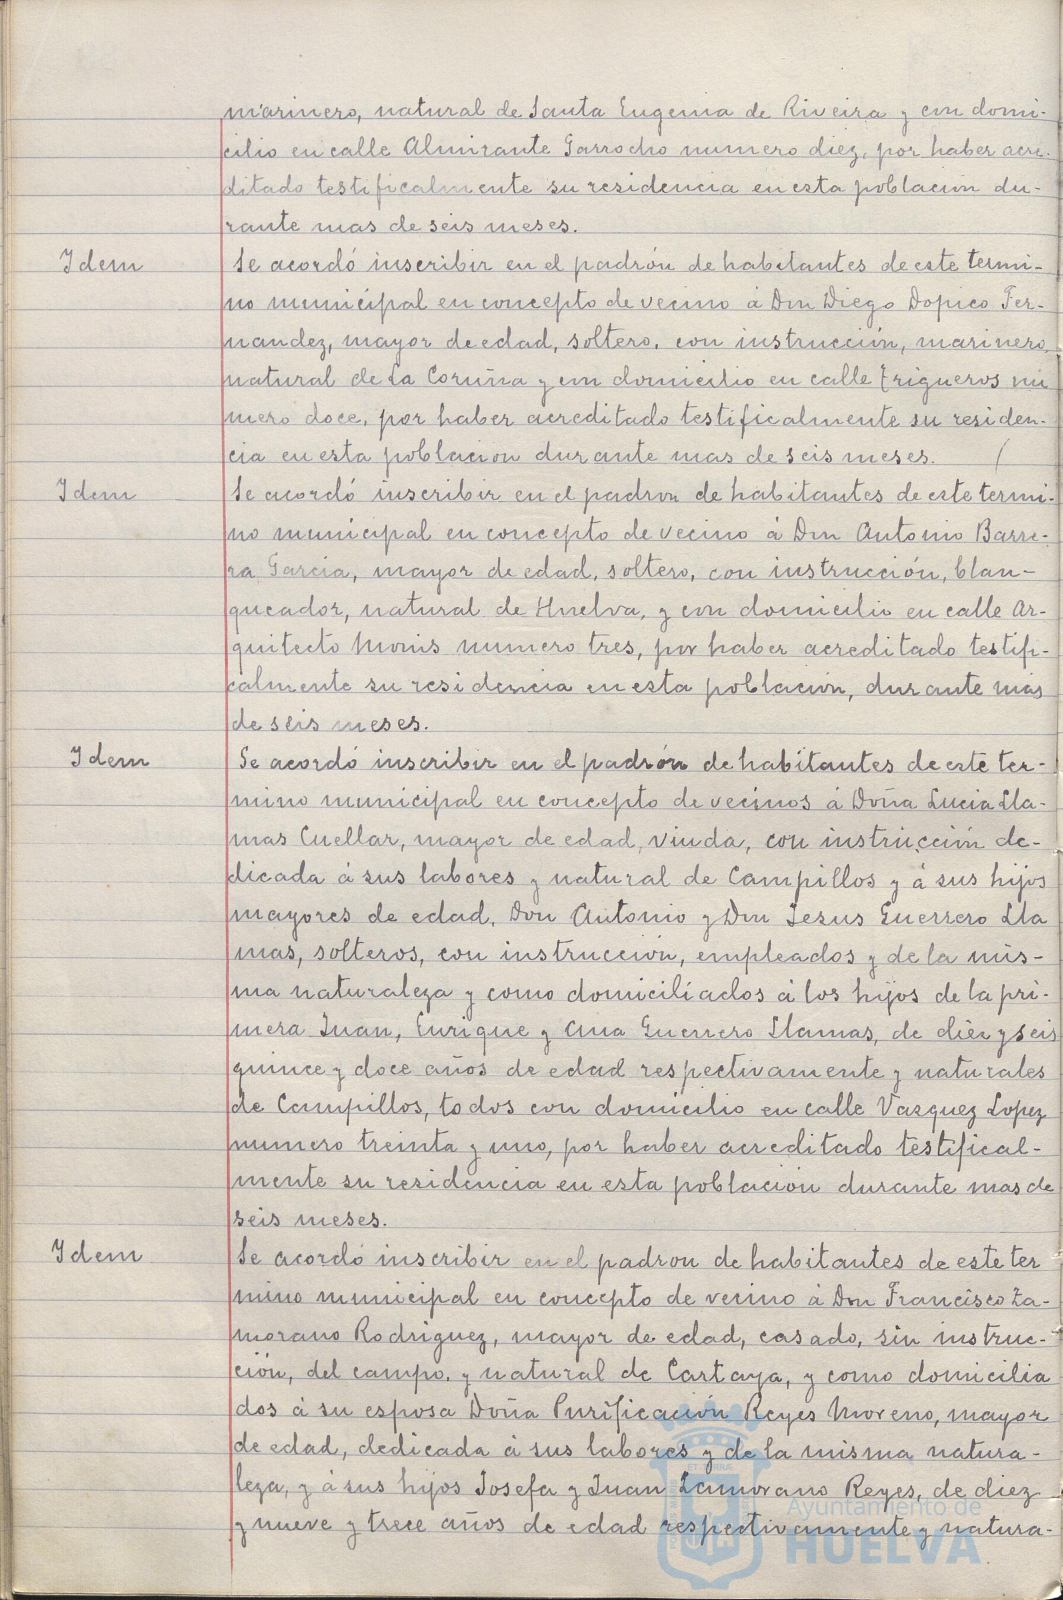 marinero, natural de Santa Eugenia de Riveira y con domi-
cilio en calle Almirante Garrocho numero diez, por haber acre-
ditado testificalmente su residencia en esta poblacion du-
rante mas de seis meses.
Idem Se acordó inscribir en el padrón de habitantes de este termi-
no municipal en concepto de vecino á Don Diego Dopico Fer-
nandez, mayor de edad, soltero, con instrucción, marinero,
natural de La Coruña y con domicilio en calle Trigueros nu
mero doce, por haber acreditado testificalmente su residen-
cia en esta poblacion durante mas de seis meses.
Idem Se acordó inscribir en el padron de habitantes de este termi-
no municipal en concepto de vecino á Don Antonio Barre-
ra Garcia, mayor de edad, soltero, con instrucción, blan-
queador, natural de Huelva, y con domicilio en calle Ar-
quitecto Monis numero tres, por haber acreditado testifi-
calmente su residencia en esta población, durante mas
de seis meses.
Idem Se acordó inscribir en el padrón de habitantes de este ter-
mino municipal en concepto de vecinos á Doña Lucia Lla-
mas Cuellar, mayor de edad, viuda, con instrucción de-
dicada á sus labores y natural de Campillos y á sus hijos
mayores de edad, Don Antonio y Don Jesus Guerrero Lla
mas, solteros, con instruccion, empleados y de la mis-
ma naturaleza y como domiciliados á los hijos de la pri-
mera Juan, Enrique y Ana Guerrero Llamas, de diez y seis
quince y doce años de edad respectivamente y naturales
de Campillos, todos con domicilio en calle Vazquez Lopez
numero treinta y uno, por haber acreditado testifical-
mente su residencia en esta poblacion durante mas de
seis meses.
Idem Se acordó inscribir en el padron de habitantes de este ter
mino municipal en concepto de vecino á Don Francisco Za-
morano Rodriguez, mayor de edad, casado, sin instruc-
ción, del campo, y natural de Cartaya, y como domicilia
dos á su esposa Doña Purificación Reyes Moreno, mayor
de edad, dedicada á sus labores y de la misma natura-
leza, y á sus hijos Josefa y Juan Zamorano Reyes, de diez
y nueve y trece años de edad respectivamente y natura-
Ayuntamiento de
HUELVA